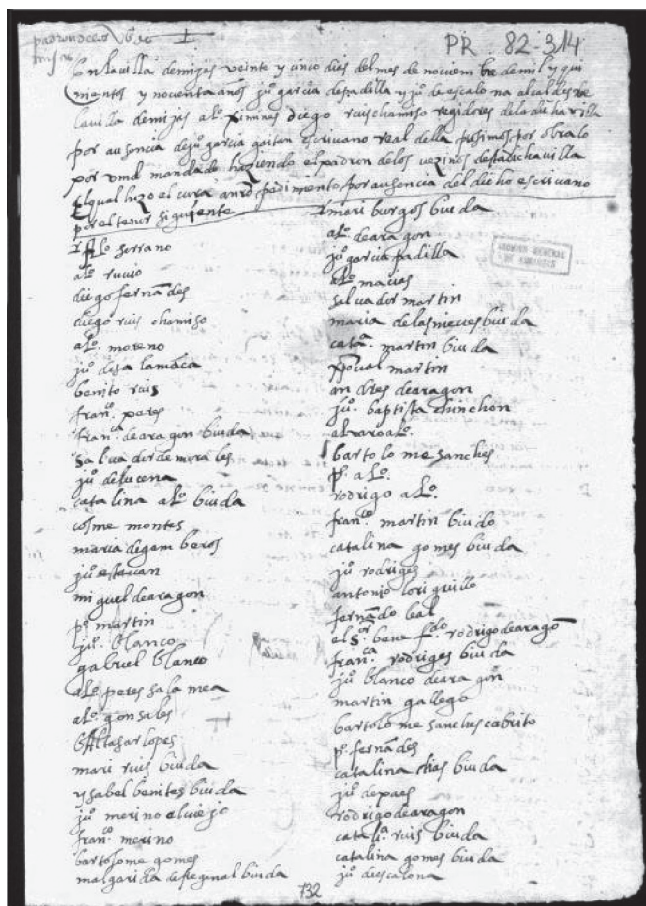 PR. 82-314
En la villa de mijas veinte y cinco dias del mes de noviembre de mil y qui
nientos y noventa años juº garcia de padilla y juº de escalona alcaldes de
la villa de mijas alº ximines diego ruis chamiso regidores de la dicha villa
por ausencia de juº garcia gaitan escrivano real della pusimos por obra lo
por vmd mandado haziendo el padron de los vezinos desta dicha villa
El qual hizo el cura a nrō pedimento por ausencia del dicho escrivano
por el tenor siguiente
alº serrano
alº rucio
diego fernādes
diego ruis chamiso
alº moreno
juº de sa lamāca
benito ruis
franco. peres
franca. de aragon biuda
salvador de morales
juº de lucena
catalina alº biuda
cosme montes
maria de gamberos
juº estevan
miguel de aragon
pº martin
juº. blanco
gabriel blanco
alº peres salamea
alº gonsales
baltasar lopes
mari ruis biuda
ysabel benites biuda
juº merino el viejo
franco. merino
bartolome gomes
malgarida de freginal biuda
mari burgos biuda
alº de aragon
juº garcia padilla
alº macias
salvador martin
maria de las nieves biuda
cata. martin biuda
pasqual martin
andres de aragon
juº. baptista chinchon
alvaro alº.
bartolome sanches
pº. alº.
rodrigo alº.
franco. martin biudo
catalina gomes biuda
juº rodriges
antonio loriguillo
fernādo leal
el sor benefdo. rodrigo de aragō
franca. rodriges biuda
juº blanco de aragon
martin gallego
bartolome sanches cabrito
pº. fernādes
catalina dias biuda
juº de paes
rodrigo de aragon
catalª. ruis biuda
catalina gomes biuda
juº de escalona
132